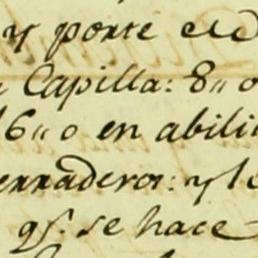 y porte el
Capilla: 8,, o
6,, o en abili
erraderos: y lo
qs. se hace